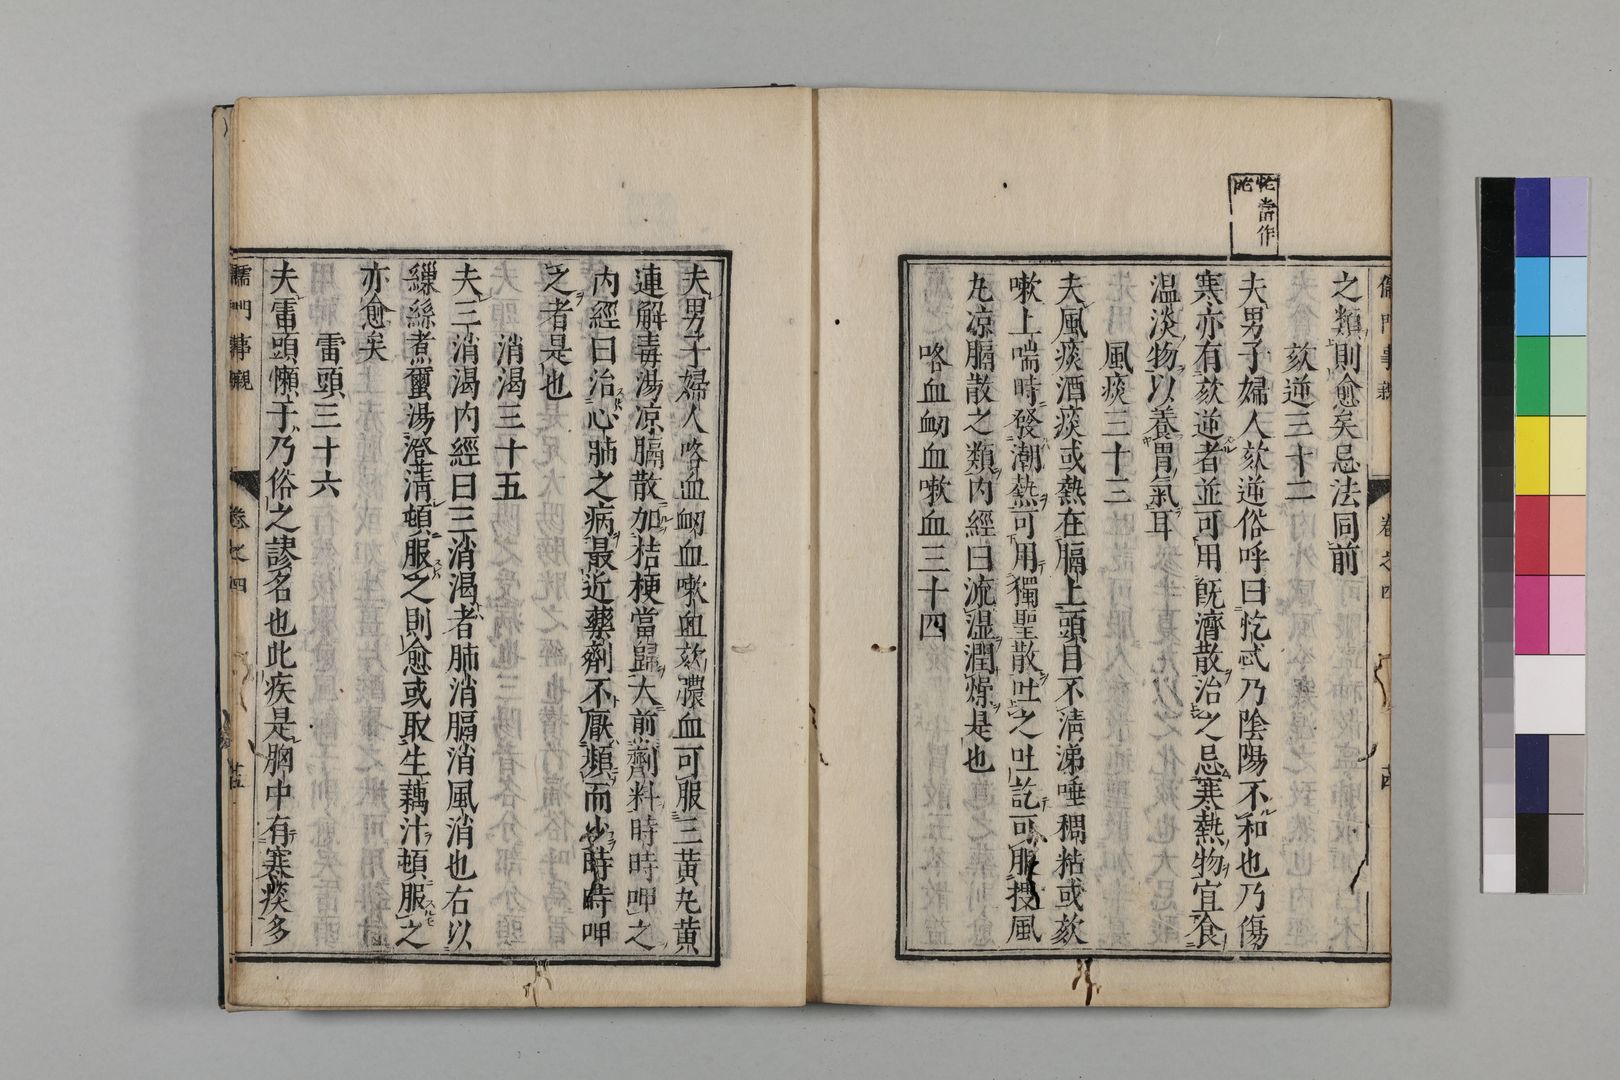 當作
之類則愈矣忌法同前
欬逆三十二
夫男子婦人欬逆俗呼曰忔忒乃陰陽不和也乃傷
寒亦有欬逆者並可用既濟散治之忌寒熱物宜食
温淡物以養胃氣耳
風痰三十三
夫風痰酒痰或熱在膈上頭目不清涕唾稠粘或欬
嗽上喘時發潮熱可用獨聖散吐之吐訖可服搜風
丸凉膈散之類内經曰流湿潤燥是也
咯血衂血嗽血三十四
夫男子婦人咯血衂血嗽血欬膿血可服三黄丸黄
連解毒湯凉膈散加桔梗當歸大煎劑料時時呷之
内經曰治心肺之病最近藥劑不厭頻而少時時呷
之者是也
消渴三十五
夫三消渴内經曰三消渴者肺消膈消風消也右以
繅絲煮蠒湯澄清頓服之則愈或取生藕汁頓服之
亦愈矣
雷頭三十六
夫雷頭懶于乃俗之謬名也此疾是胸中有寒痰多
儒門事親
卷之四